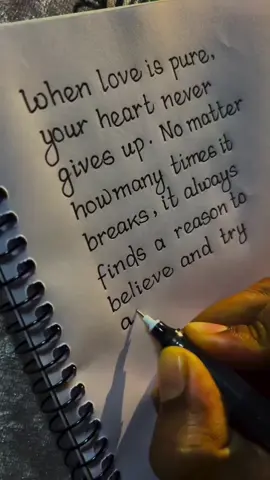 When love is pure,
your heart never
gives up. No matter
how many times it
breaks, it always
finds a reason to
believe and try
a